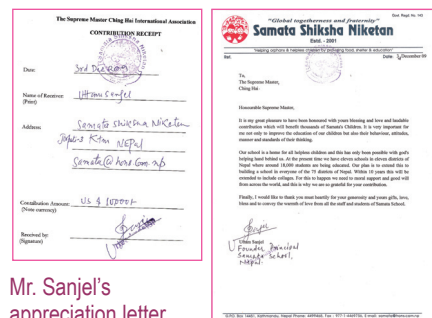 The Supreme Master Ching Hai International Association
CONTRIBUTION RECEIPT
Date: 3rd Dec
Name of Receiver: Uttam Sanjel
(Print)
Address: Samata Shiksha Niketan
Nepal
Contribution Amount: US $
(Note currency)
Received by:
(Signature)
Mr. Sanjel's
appreciation letter
Govt. Regd. No. 142
"Global togetherness and fraternity"
Samata Shiksha Niketan
Estd. - 2001
"Helping orphans & helpless children by packaging food, shelter & education"
Ref. Date: December 09
To,
The Supreme Master,
Ching Hai.
Honourable Supreme Master,
It is my great pleasure to have been honoured with yours blessing and love and laudable
contribution which will benefit thousands of Samata's Children. It is very important for
me not only to improve the education of our children but also their behaviour, attitudes,
manner and standards of their thinking.
Our school is a home for all helpless children and this has only been possible with god's
helping hand behind us. At the present time we have eleven schools in eleven districts of
Nepal where around 18,000 students are being educated. Our plan is to extend this to
building a school in everyone of the 75 district of Nepal. Within 10 years this will be
extended to include collages. For this to happen we need to moral support and good will
from across the world, and this is why we are so grateful for your contribution.
Finally, I would like to thank you most heartily for your generosity and yours gifts, love,
bless and to convey the warmth of love from all the staff and students of Samata School.
Uttam Sanjel
Founder Principal
Samata School,
Nepal.